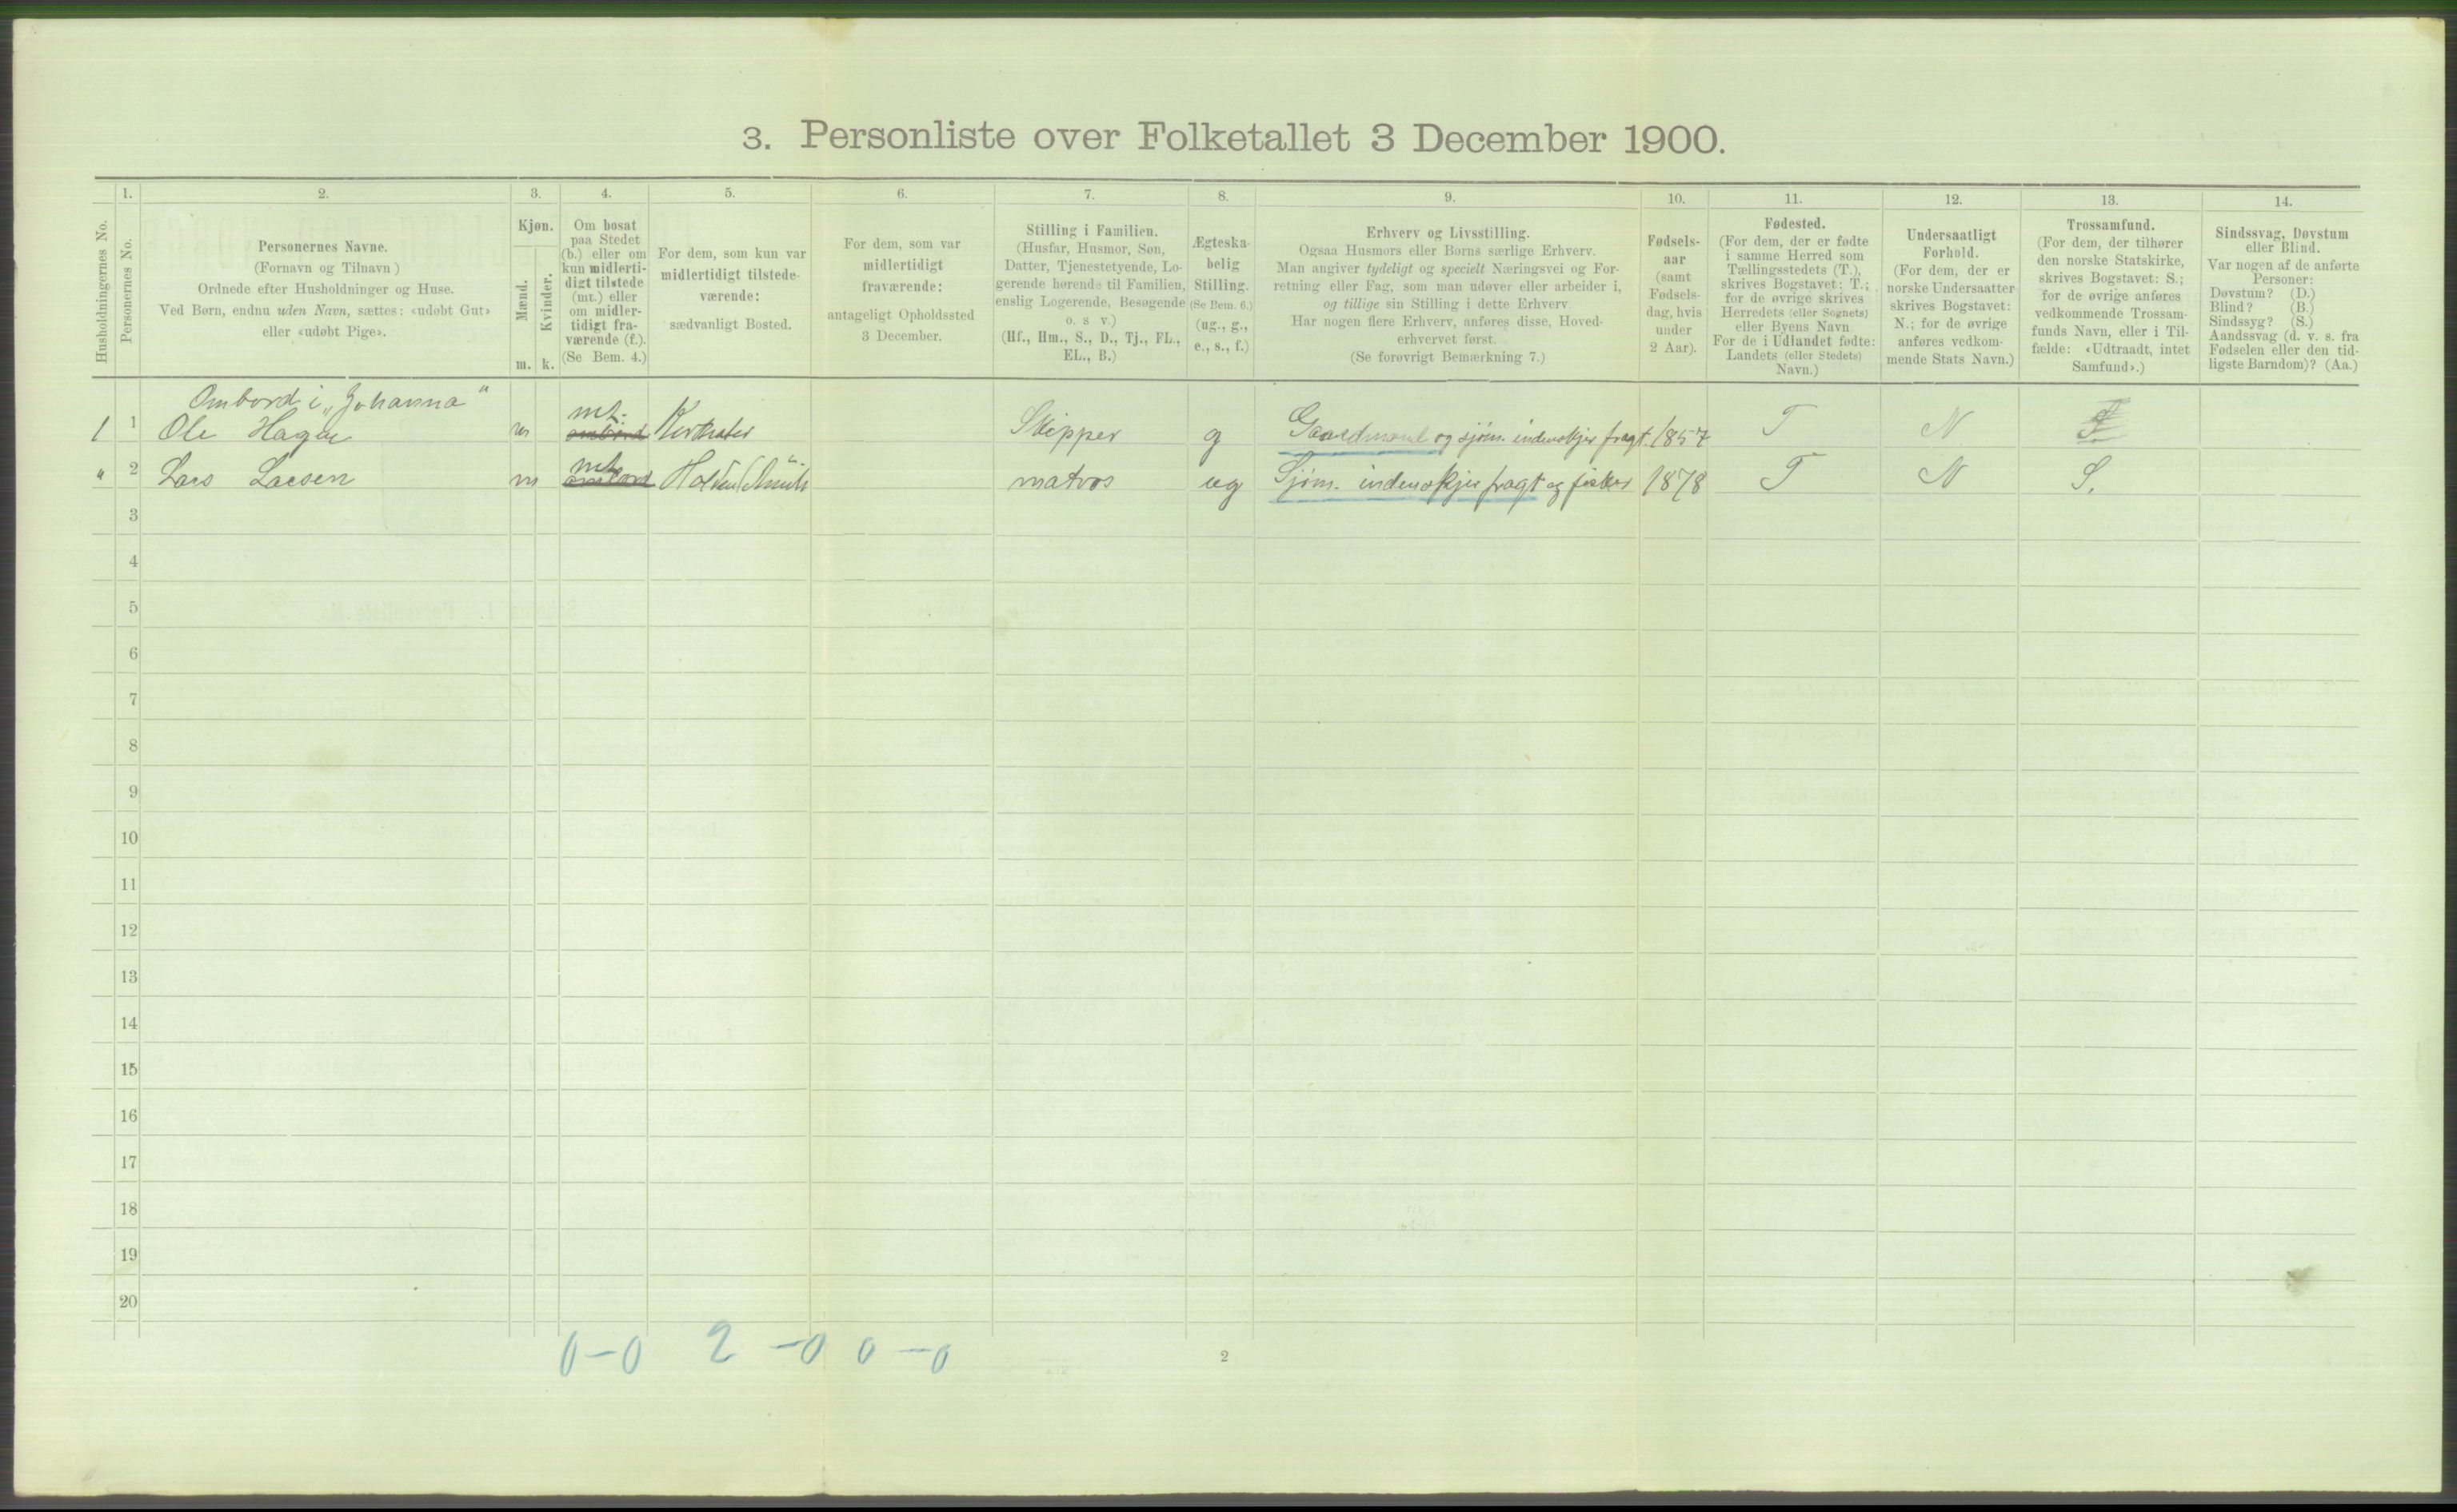 3. Personliste over Folketallet 3 December 1900.
1. 2. 3. 4. 5. 6. 7. 8. 9. 10. 11. 12. 13. 14.
Husholdningernes No.
Personernes No.
Personernes Navne.
(Fornavn og Tilnavn)
Ordnede efter Husholdninger og Huse.
Ved Børn, endnu uden Navn, sættes: «udøbt Gut»
eller «udøbt Pige».
Kjøn.
Mænd.
Kvinder.
m. k.
Om bosat
paa Stedet
(b.) eller om
kun midlerti-
digt tilstede
(mt.) eller
om midler-
tidigt fra-
værende (f.).
(Se Bem. 4.)
For dem, som kun var
midlertidigt tilstede-
værende:
sædvanligt Bosted.
For dem, som var
midlertidigt
fraværende:
antageligt Opholdssted
3 December.
Stilling i Familien.
(Husfar, Husmor, Søn,
Datter, Tjenestetyende, Lo-
gerende hørende til Familien,
enslig Logerende, Besøgende
o. s v.)
(Hf., Hm., S., D., Tj., FL.,
EL., B.)
Ægteska-
belig
Stilling.
(Se Bem. 6.)
(ug., g.,
e., s., f.)
Erhverv og Livsstilling.
Ogsaa Husmors eller Børns særlige Erhverv.
Man angiver tydeligt og specielt Næringsvei og For-
retning eller Fag, som man udøver eller arbeider i,
og tillige sin Stilling i dette Erhverv.
Har nogen flere Erhverv, anføres disse, Hoved-
erhvervet først.
(Se forøvrigt Bemærkning 7.)
Fødsels-
aar
(samt
Fødsels-
dag, hvis
under
2 Aar).
Fødested.
(For dem, der er fødte
i samme Herred som
Tællingsstedets (T.),
skrives Bogstavet: T.;
for de øvrige skrives
Herredets (eller Sognets)
eller Byens Navn.
For de i Udlandet fødte:
Landets (eller Stedets)
Navn.)
Undersaatligt
Forhold.
(For dem, der er
norske Undersaatter
skrives Bogstavet:
N.; for de øvrige
anføres vedkom-
mende Stats Navn.)
Trossamfund.
(For dem, der tilhører
den norske Statskirke,
skrives Bogstavet: S.;
for de øvrige anføres
vedkommende Trossam-
funds Navn, eller i Til-
fælde: «Udtraadt, intet
Samfund».)
Sindssvag, Døvstum
eller Blind.
Var nogen af de anførte
Personer:
Døvstum? (D.)
Blind? (B.)
Sindssyg? (S.)
Aandssvag (d. v. s. fra
Fødselen eller den tid-
ligste Barndom)? (Aa.)
Ombord i „Johanna"
1 1 Ole Hagen m mt. ombord Skipper g Gaardmand og sjøm. indenskjes fragt. 1857 T N S.
" 2 Lars Larsen m mt ombord matros ug Sjøm. indenskjes fragt og fisker 1878 T N S.
3
4
5
6
7
8
9
10
11
12
13
14
15
16
17
18
19
20
0-0 2-0 0-0
2